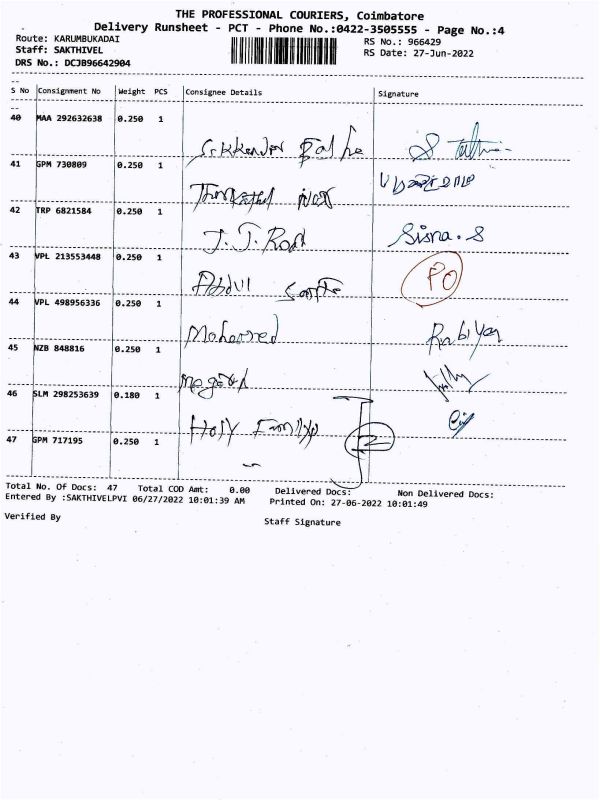 THE PROFESSIONAL COURIERS, Coimbatore
Delivery Runsheet - PCT - Phone No.:0422-3505555 - Page No.:4
Route: KARUMBUKADAI
RS No.: 966429
Staff: SAKTHIVEL
RS Date: 27-Jun-2022
DRS No.: DCJB96642904
S No Consignment No Weight PCS Consignee Details Signature
40 MAA 292632638 0.250 1
41 GPM 730809 0.250 1
42 TRP 6821584 0.250 1
J.J. Road Sisna.S
43 VPL 213553448 0.250 1
Abdul PO
44 VPL 498956336 0.250 1
Rabiya
45 NZB 848816 0.250 1
46 SLM 298253639 0.180 1
Holy Family
2
47 GPM 717195 0.250 1
Total No. Of Docs: 47 Total COD Amt: 0.00 Delivered Docs: Non Delivered Docs:
Entered By :SAKTHIVELPVI 06/27/2022 10:01:39 AM Printed On: 27-06-2022 10:01:49
Verified By
Staff Signature